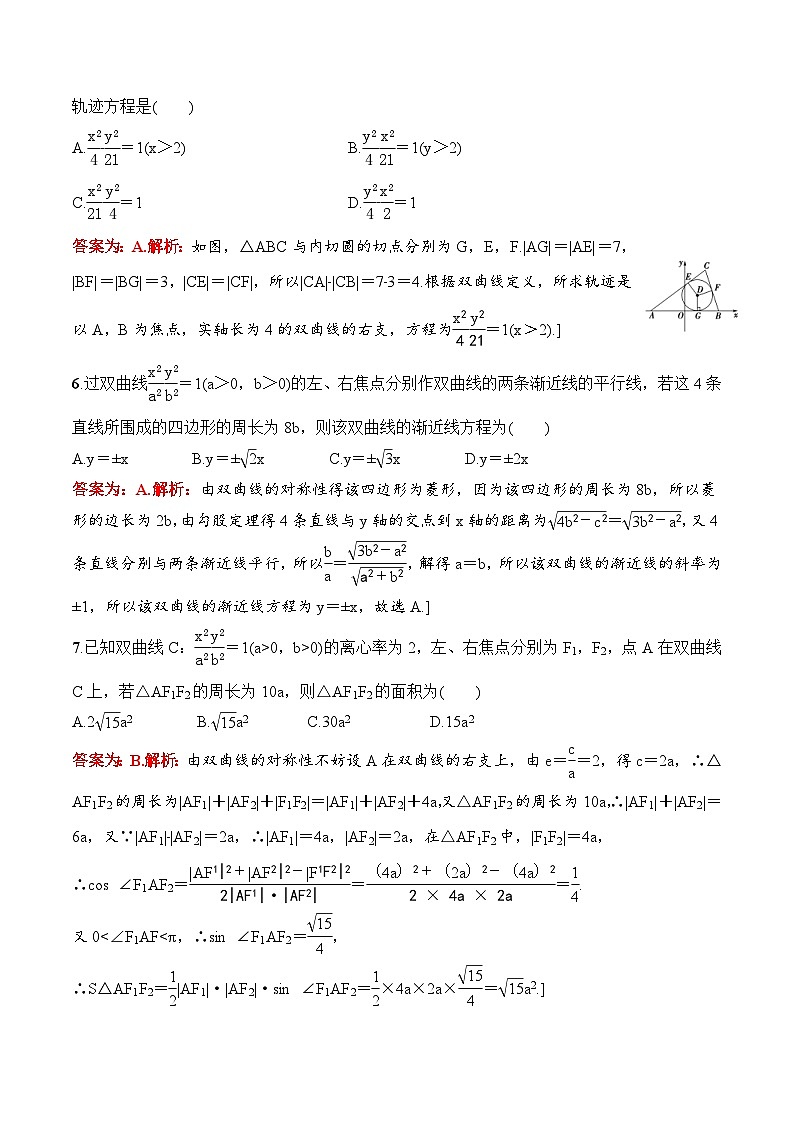 轨迹方程是(　　)
A.x²/4 y²/21＝1(x＞2)　　B.y²/4 x²/21＝1(y＞2)
C.x²/21 y²/4＝1　　D.y²/4 x²/2＝1
答案为：A.解析：如图，△ABC与内切圆的切点分别为G，E，F.|AG|＝|AE|＝7，
|BF|＝|BG|＝3，|CE|＝|CF|，所以|CA|-|CB|＝7-3＝4.根据双曲线定义，所求轨迹是
以A，B为焦点，实轴长为4的双曲线的右支，方程为x²/4 y²/21＝1(x＞2).]
y C E D F A O G B x
6.过双曲线x²/a² y²/b²＝1(a＞0，b＞0)的左、右焦点分别作双曲线的两条渐近线的平行线，若这4条
直线所围成的四边形的周长为8b，则该双曲线的渐近线方程为(　　)
A.y＝±x　　B.y＝±√2x　　C.y＝±√3x　　D.y＝±2x
答案为：A.解析：由双曲线的对称性得该四边形为菱形，因为该四边形的周长为8b，所以菱
形的边长为2b，由勾股定理得4条直线与y轴的交点到x轴的距离为√(4b²－c²)＝√(3b²－a²)，又4
条直线分别与两条渐近线平行，所以b/a＝√(3b²－a²)/√(a²＋b²)，解得a＝b，所以该双曲线的渐近线的斜率为
±1，所以该双曲线的渐近线方程为y＝±x，故选A.]
7.已知双曲线C：x²/a² y²/b²＝1(a>0，b>0)的离心率为2，左、右焦点分别为F₁，F₂，点A在双曲线
C上，若△AF₁F₂的周长为10a，则△AF₁F₂的面积为(　　)
A.2√15a²　　B.√15a²　　C.30a²　　D.15a²
答案为：B.解析：由双曲线的对称性不妨设A在双曲线的右支上，由e＝c/a＝2，得c＝2a，∴△
AF₁F₂的周长为|AF₁|＋|AF₂|＋|F₁F₂|＝|AF₁|＋|AF₂|＋4a，又△AF₁F₂的周长为10a，∴|AF₁|＋|AF₂|＝
6a，又∵|AF₁|-|AF₂|＝2a，∴|AF₁|＝4a，|AF₂|＝2a，在△AF₁F₂中，|F₁F₂|＝4a，
∴cos ∠F₁AF₂＝(|AF¹|²＋|AF²|²－|F¹F²|²)/(2|AF¹|·|AF²|)＝((4a)²＋(2a)²－(4a)²)/(2×4a×2a)＝1/4.
又0<∠F₁AF<π，∴sin ∠F₁AF₂＝√15/4，
∴S△AF₁F₂＝1/2|AF₁|·|AF₂|·sin ∠F₁AF₂＝1/2×4a×2a×√15/4＝√15a².]